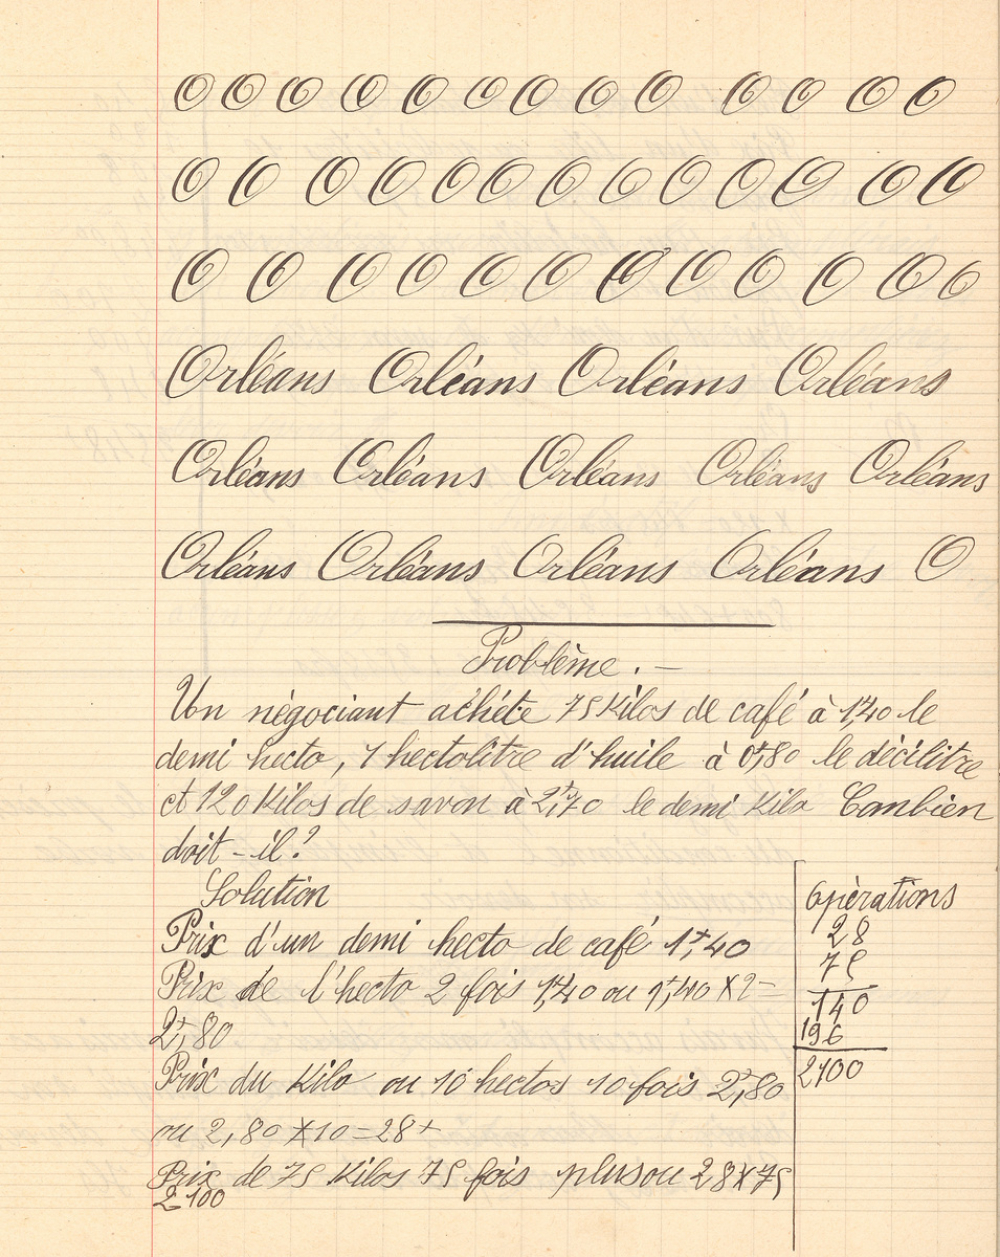 O O O O O O O O O O O O O
O O O O O O O O O O O O O
O O O O O O O O O O O O
Orléans Orléans Orléans Orléans
Orléans Orléans Orléans Orléans Orléans
Orléans Orléans Orléans Orléans O
Problème . —
Un négociant achète 75 Kilos de café à 1f,40 le
demi hecto, 1 hectolitre d'huile à 0f,80 le décilitre
et 120 Kilos de savon à 2f,70 le demi Kilo Combien
doit-il ?
Solution
Prix d'un demi hecto de café 1f,40
Prix de l'hecto 2 fois 1f,40 ou 1f,40 X 2 =
2f,80
Prix du Kilo ou 10 hectos 10 fois 2f,80
ou 2,80 X 10 = 28f
Prix de 75 Kilos 75 fois plus ou 28 X 75
2100
Opérations
28
75
140
196
2100